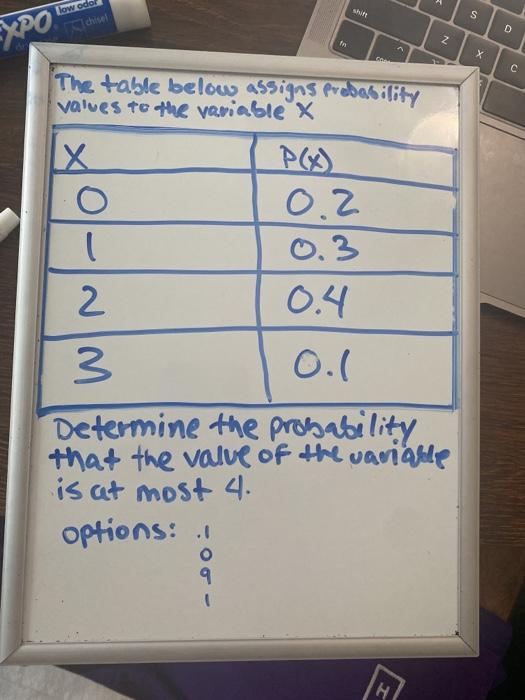 EXPO
low odor
chisel
shift
fn
A
S
D
Z
X
C
The table below assigns probability
values to the variable X
X P(x)
0 0.2
1 0.3
2 0.4
3 0.1
Determine the probability
that the value of the variable
is at most 4.
options: .1
0
9
1
H